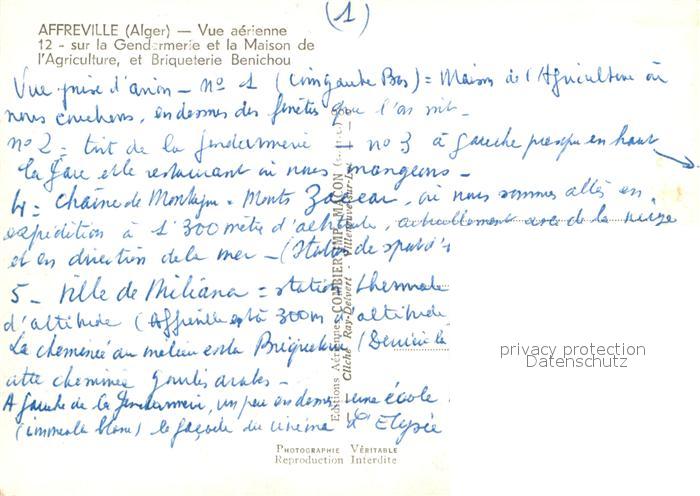 (1)
AFFREVILLE (Alger) — Vue aérienne
12 - sur la Gendarmerie et la Maison de
l'Agriculture, et Briqueterie Benichou
Vue prise d'avion - n° 1 (coin gauche Bas) = Maison de l'Agriculture où
nous couchons, en dessous des fenêtes que l'on voit -
n° 2 = toit de la gendarmerie - n° 3 à gauche presque en haut
la gare et le restaurant où nous mangeons -
4 = Chaîne de Montagne = Monts Zaccar, où nous sommes allés en
expédition à 1300 mètre d'altitude, actuellement avec de la neige
et en direction de la mer - (Station de sports
5 - Ville de Miliana = station thermale
d'altitude (Affreville est à 300m d'altitude
La cheminée au milieu est la Briqueterie (Derrière la
cette cheminée gourbis arabes -
A gauche de la gendarmerie, un peu en dessous une école
(immeuble blanc) la façade du cinéma l'Elysée
Editions Aériennes COMBIER IMP. MACON
Cliché Ray-Delvert Villeneuve-sur-Lot
privacy protection
Datenschutz
PHOTOGRAPHIE VÉRITABLE
Reproduction Interdite